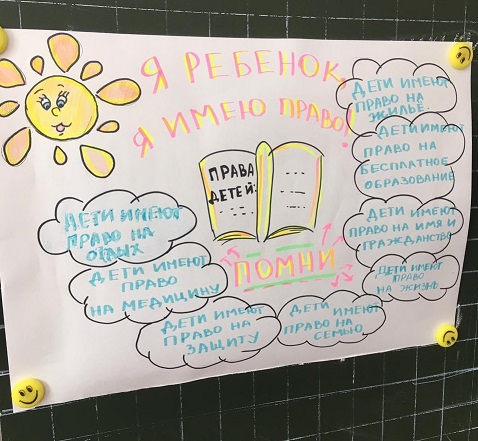 Я РЕБЕНОК,
Я ИМЕЮ ПРАВО!
ПРАВА
ДЕТЕЙ:
ПОМНИ
ДЕТИ ИМЕЮТ
ПРАВО НА
ЖИЛЬЕ
ДЕТИ ИМЕЮТ
ПРАВО НА
БЕСПЛАТНОЕ
ОБРАЗОВАНИЕ
ДЕТИ ИМЕЮТ
ПРАВО НА ИМЯ И
ГРАЖДАНСТВО
ДЕТИ ИМЕЮТ
ПРАВО
НА ЖИЗНЬ
ДЕТИ ИМЕЮТ
ПРАВО НА
ОТДЫХ
ДЕТИ ИМЕЮТ
ПРАВО
НА МЕДИЦИНУ
ДЕТИ ИМЕЮТ
ПРАВО НА
ЗАЩИТУ
ДЕТИ
ИМЕЮТ
ПРАВО НА
СЕМЬЮ